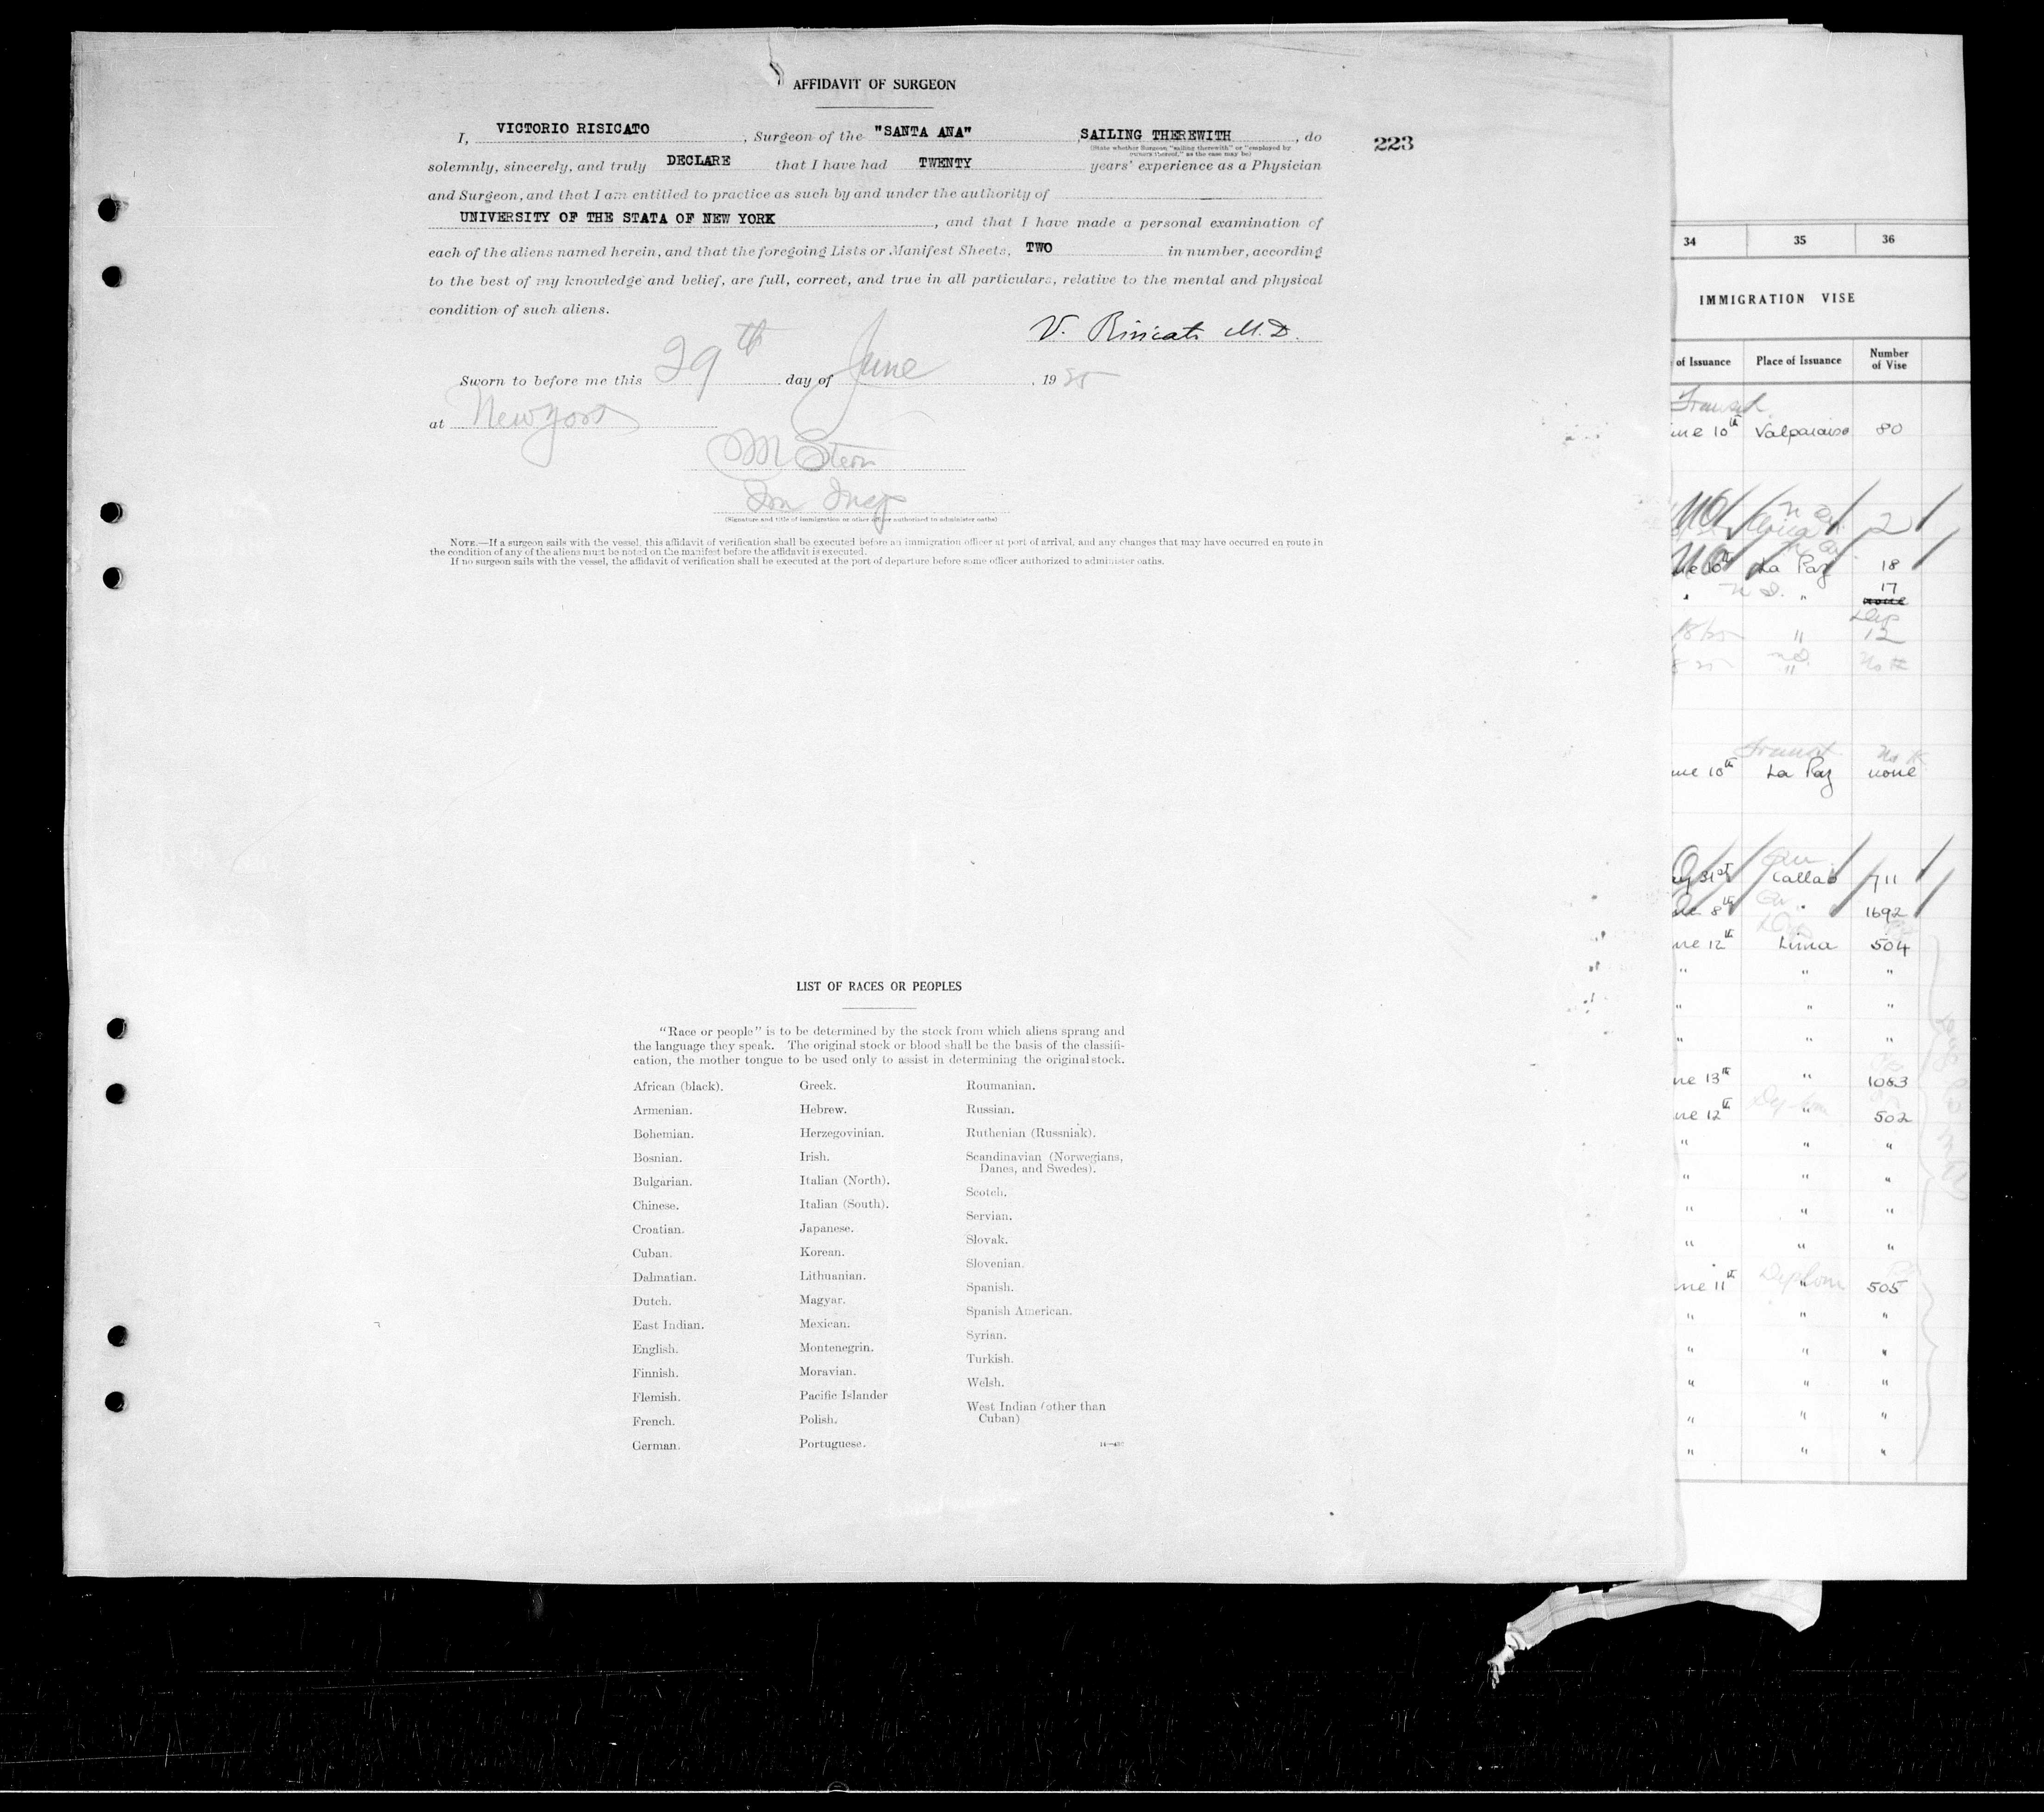 AFFIDAVIT OF SURGEON
I, VICTORIO RISICATO, Surgeon of the "SANTA ANA", SAILING THEREWITH, do
(State whether Surgeon "sailing therewith" or "employed by
owners thereof," as the case may be)
223
solemnly, sincerely, and truly DECLARE that I have had TWENTY years' experience as a Physician
and Surgeon, and that I am entitled to practice as such by and under the authority of
UNIVERSITY OF THE STATA OF NEW YORK, and that I have made a personal examination of
each of the aliens named herein, and that the foregoing Lists or Manifest Sheets, TWO in number, according
to the best of my knowledge and belief, are full, correct, and true in all particulars, relative to the mental and physical
condition of such aliens.
V. Risicato M.D.
Sworn to before me this 29th day of June, 1925
at New York
M Stern
Imm Insp
(Signature and title of immigration or other officer authorized to administer oaths)
NOTE.—If a surgeon sails with the vessel, this affidavit of verification shall be executed before an immigration officer at port of arrival, and any changes that may have occurred en route in
the condition of any of the aliens must be noted on the manifest before the affidavit is executed.
If no surgeon sails with the vessel, the affidavit of verification shall be executed at the port of departure before some officer authorized to administer oaths.
LIST OF RACES OR PEOPLES
"Race or people" is to be determined by the stock from which aliens sprang and
the language they speak. The original stock or blood shall be the basis of the classifi-
cation, the mother tongue to be used only to assist in determining the original stock.
African (black).
Armenian.
Bohemian.
Bosnian.
Bulgarian.
Chinese.
Croatian.
Cuban.
Dalmatian.
Dutch.
East Indian.
English.
Finnish.
Flemish.
French.
German.
Greek.
Hebrew.
Herzegovinian.
Irish.
Italian (North).
Italian (South).
Japanese.
Korean.
Lithuanian.
Magyar.
Mexican.
Montenegrin.
Moravian.
Pacific Islander
Polish.
Portuguese.
Roumanian.
Russian.
Ruthenian (Russniak).
Scandinavian (Norwegians,
Danes, and Swedes).
Scotch.
Servian.
Slovak.
Slovenian.
Spanish.
Spanish American.
Syrian.
Turkish.
Welsh.
West Indian (other than
Cuban)
34 35 36
IMMIGRATION VISE
of Issuance Place of Issuance Number
of Vise
Transit
10th Valparaiso 80
2
La Paz 18
" " 17
none
" 12
"
Transit
10th La Paz none
31st Callao 711
8th " 1692
12th Lima 504
" " "
" " "
" " "
13th " 1083
12th " 502
" " "
" " "
" " "
" " "
11th " 505
Diplom
" " "
" " "
" " "
" " "
" " "